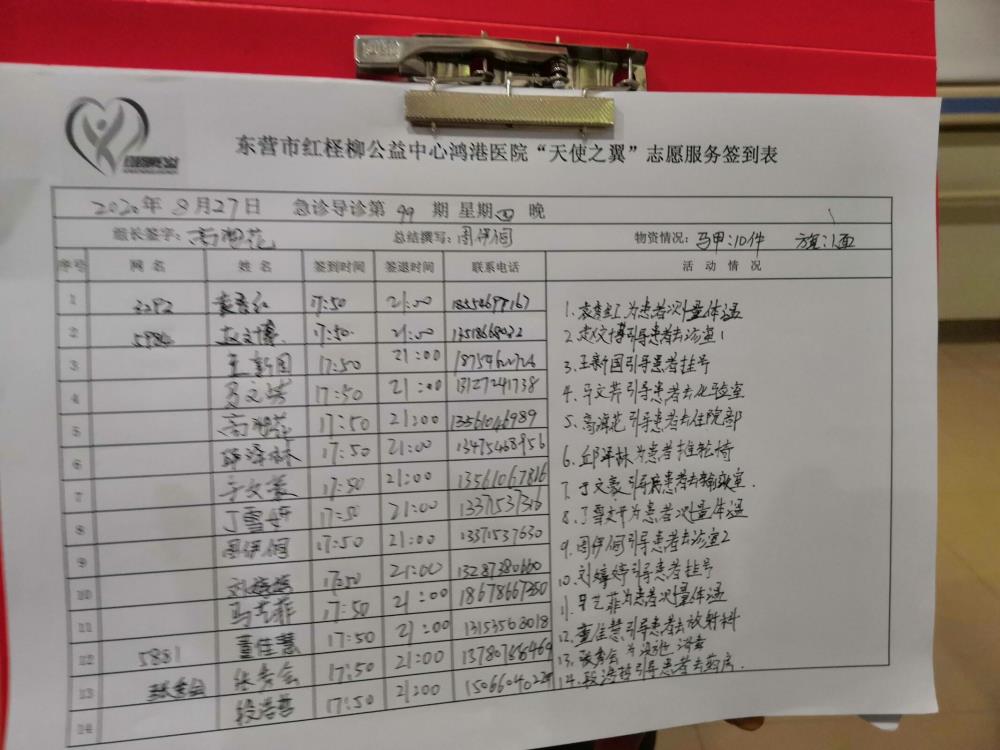 东营市红柽柳公益中心鸿港医院“天使之翼”志愿服务签到表
2020年 8月27日 急诊导诊第 99 期 星期四 晚
组长签字: 总结撰写:周伊侗 物资情况:马甲:10件 旗:1面
序号 网名 姓名 签到时间 签退时间 联系电话 活动情况
1 3292 袁秀红 17:50 21:00
2 赵文博 17:50 21:00
3 王新国 17:50 21:00
4 17:50 21:00 13127241738
5 17:50 21:00 13561046989
6 17:50 21:00 13475468956
7 于文豪 17:50 21:00 13561067816
8 丁雪妍 17:50 21:00
9 周伊侗 17:50 21:00 13371537630
10 刘婷婷 17:50 21:00
11 马艺菲 17:50 21:00
12 5881 董佳慧 17:50 21:00 13153568018
13 张秀会 张秀会 17:50 21:00
14 段浩哲 17:50 21:00
1.袁秀红为患者测量体温
2.赵文博引导患者去诊室1
3.王新国引导患者挂号
4.引导患者去化验室
5.引导患者去住院部
6.为患者推轮椅
7.于文豪引导患者去输液室.
8.丁雪妍为患者测量体温
9.周伊侗引导患者去诊室2
10.刘婷婷引导患者挂号
11.马艺菲为患者测量体温
12.董佳慧引导患者去放射科
13.张秀会为
14.段浩哲引导患者去药房.